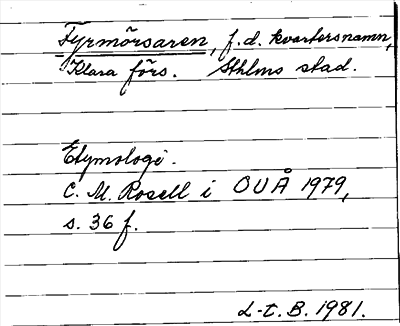 Fyrmörsaren, f.d. kvartersnamn,
Klara förs. Sthlms stad.
Etymologi.
C. M. Rosell i OUÅ 1979,
s. 36 f.
L-t. B. 1981.